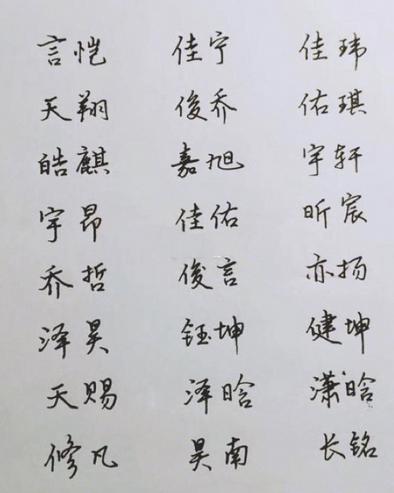 言恺 佳宁 佳玮
天翔 俊乔 佑琪
皓麒 嘉旭 宇轩
宇昂 佳佑 昕宸
乔哲 俊言 亦扬
泽昊 钰坤 健坤
天赐 泽晗 潇晗
修凡 昊南 长铭